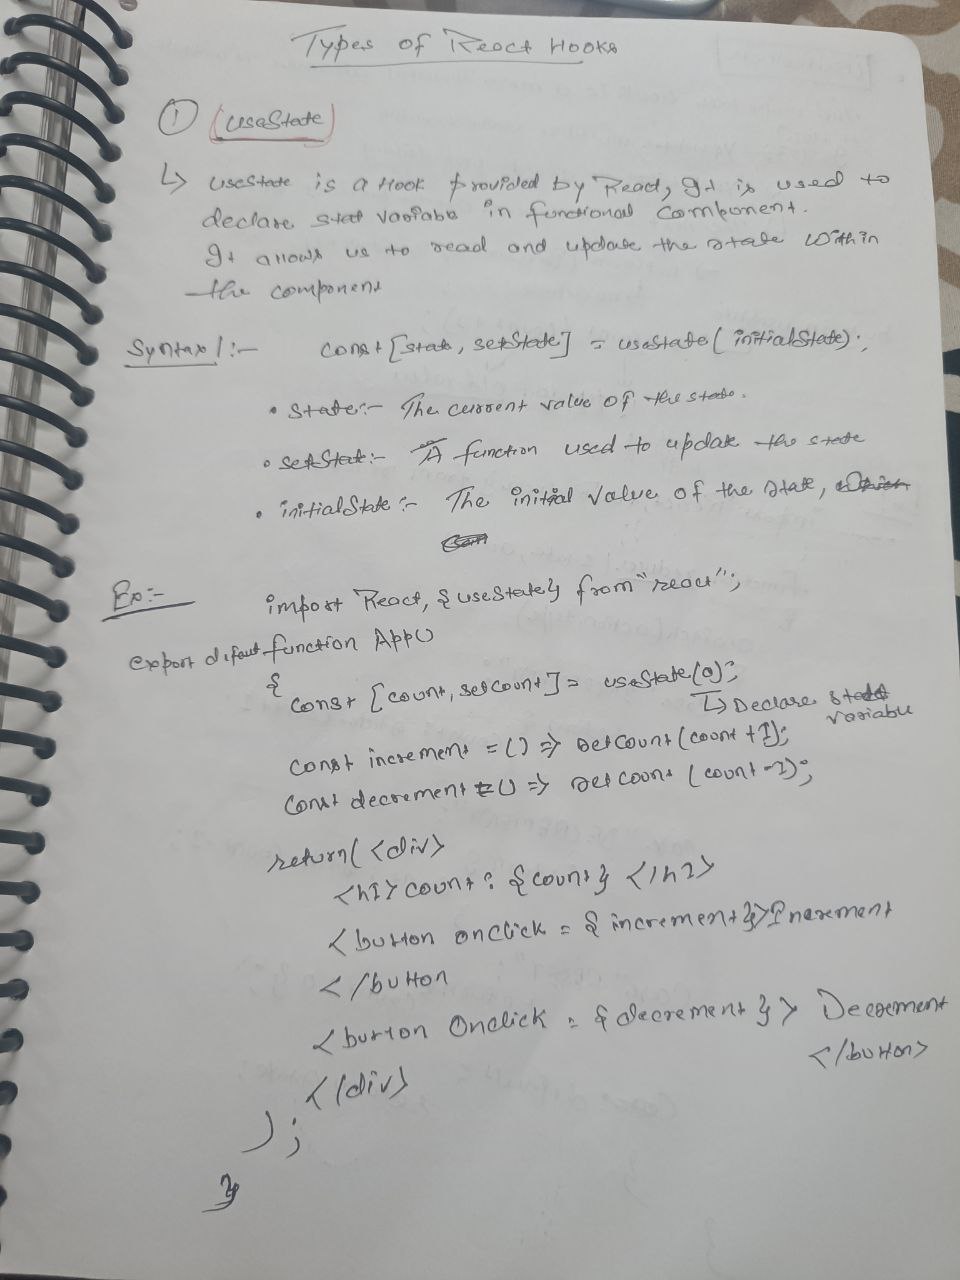 Types of React Hooks
① (useState)
↳ useState is a Hook provided by React, It is used to
declare stat variable in functional component.
It allows us to read and update the state within
the component
Syntax :- const [state, setState] = useState( initialState);
• state:- The current value of the state.
• setState:- A function used to update the state
• initialState :- The initial value of the state,
Ex:- import React, {useState} from "react";
export difaut function App()
{
const [count, setcount] = useState(0);
↳ Declare state
variable
const increment = () => setcount (count + 1);
const decrement = () => setcount (count - 1);
return( <div>
<h1> count : {count} </h1>
<button onclick = { increment }>Increment
</button
<button Onclick = { decrement } > Decrement
</button>
</div>
);
}